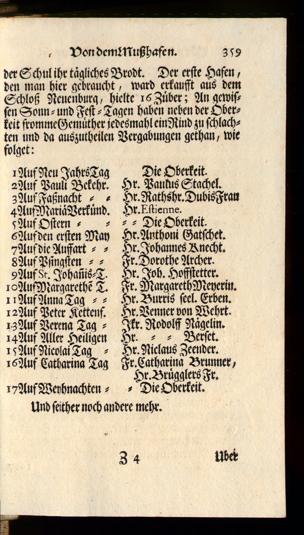 Von dem Mußhafen. 359
der Schul ihr tägliches Brodt. Der erste Hafen,
den man hier gebraucht, ward erkaufft aus dem
Schloß Neuenburg, hielte 16 Züber; An gewis-
sen Sonn- und Fest-Tagen haben neben der Ober-
keit fromme Gemüther jedesmahl ein Rind zu schlach-
ten und da auszutheilen Vergabungen gethan, wie
folget:
1 Auf Neu Jahrs Tag Die Oberkeit.
2 Auf Pauli Bekehr. Hr. Paulus Stachel.
3 Auf Faßnacht - - Hr. Rathshr. Dubis Frau
4 Auf Mariä Verkünd. Hr. Estienne.
5 Auf Ostern - - - - Die Oberkeit.
6 Auf den ersten May Hr. Anthoni Gatschet.
7 Auf die Auffart - - Hr. Johannes Knecht.
8 Auf Pfingsten - - Fr. Dorothe Archer.
9 Auf St. Johañis-T. Hr. Joh. Hoffstetter.
10 Auf Margarethē T. Fr. Margareth Meyerin.
11 Auf Anna Tag - - Hr. Burris seel. Erben.
12 Auf Peter Kettenf. Hr. Venner von Wehrt.
13 Auf Verena Tag - Jkr. Rodolff Nägelin.
14 Auf Aller Heiligen Hr. - - Berset.
15 Auf Nicolai Tag - Hr. Niclaus Zeender.
16 Auf Catharina Tag Fr. Catharina Brunner,
Hr. Brügglers Fr.
17 Auf Weyhnachten - - Die Oberkeit.
Und seither noch andere mehr.
Z 4 Uber